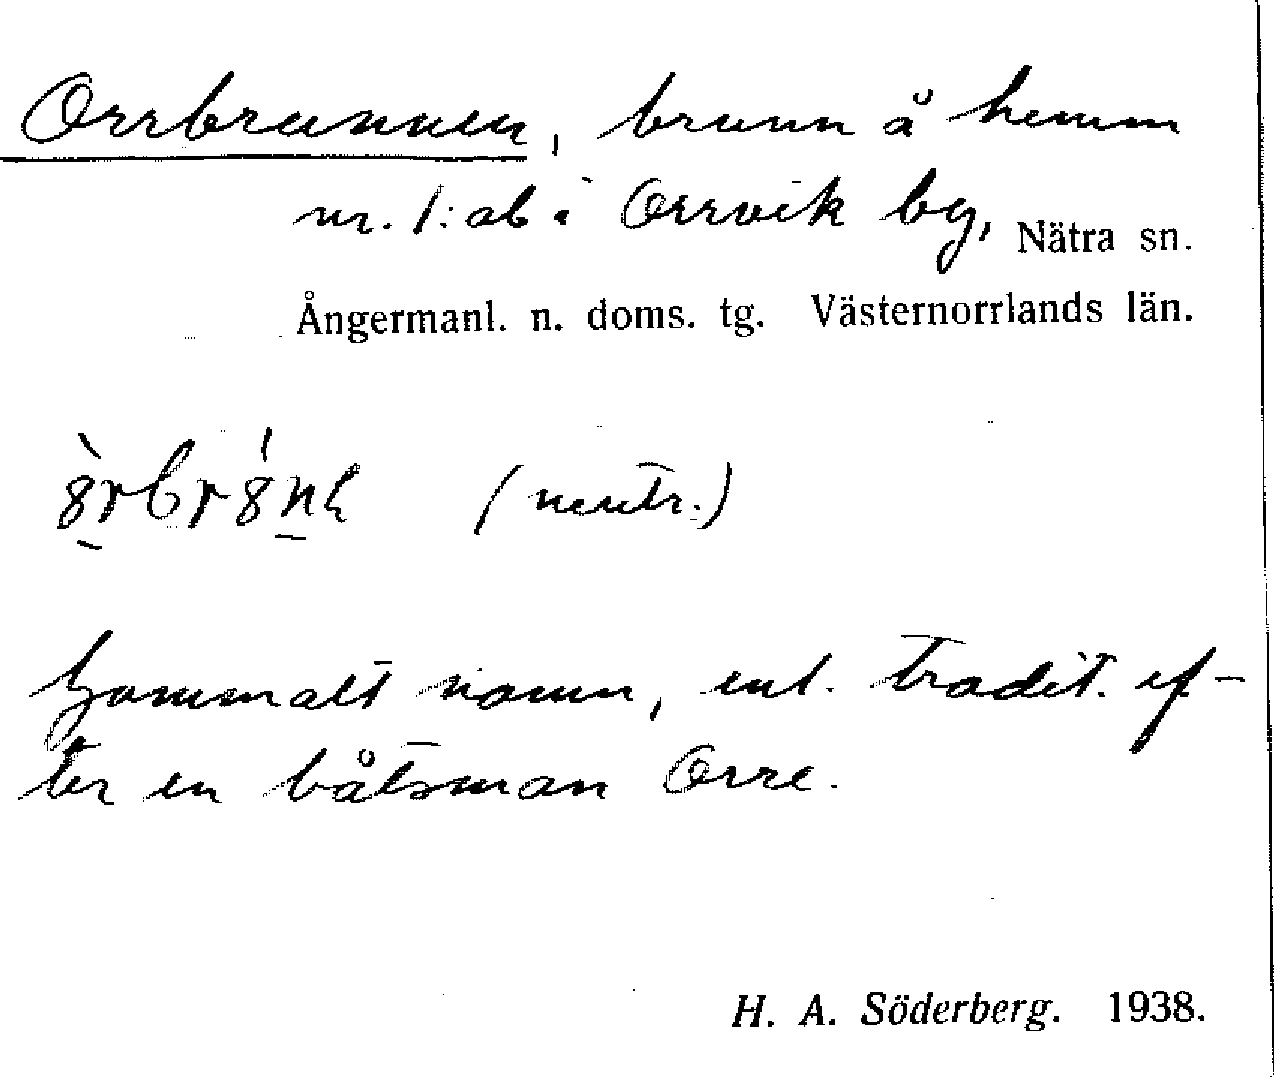 Orrbrunnen, brunn å hemm
nr. 1:ab i Orrvik by, Nätra sn.
Ångermanl. n. doms. tg. Västernorrlands län.
(neutr.)
Gammalt namn, enl. tradit. ef-
ter en båtsman Orre.
H. A. Söderberg. 1938.